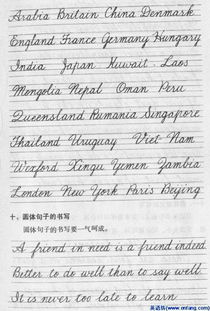 Arabia Britain China Denmark
England France Germany Hungary
India Japan Kuwait Laos
Mongolia Nepal Oman Peru
Queensland Rumania Singapore
Thailand Uruguay Viet-Nam
Wexford Xingu Yemen Zambia
London New York Paris Beijing
十、圆体句子的书写
圆体句子的书写要一气呵成。
A friend in need is a friend indeed.
Better to do well than to say well.
It is never too late to learn.
英语坊(www.enfang.com)